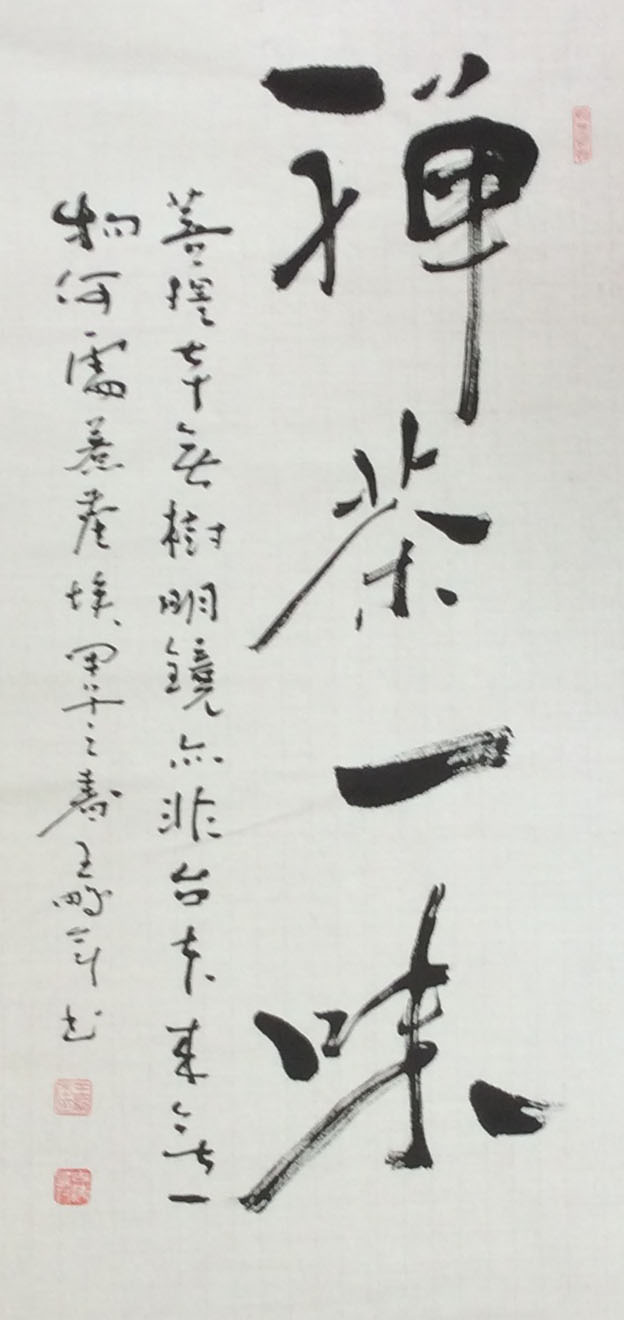 禅茶一味
菩提本無樹明鏡亦非台本来無一
物何處惹塵埃甲午之春王书